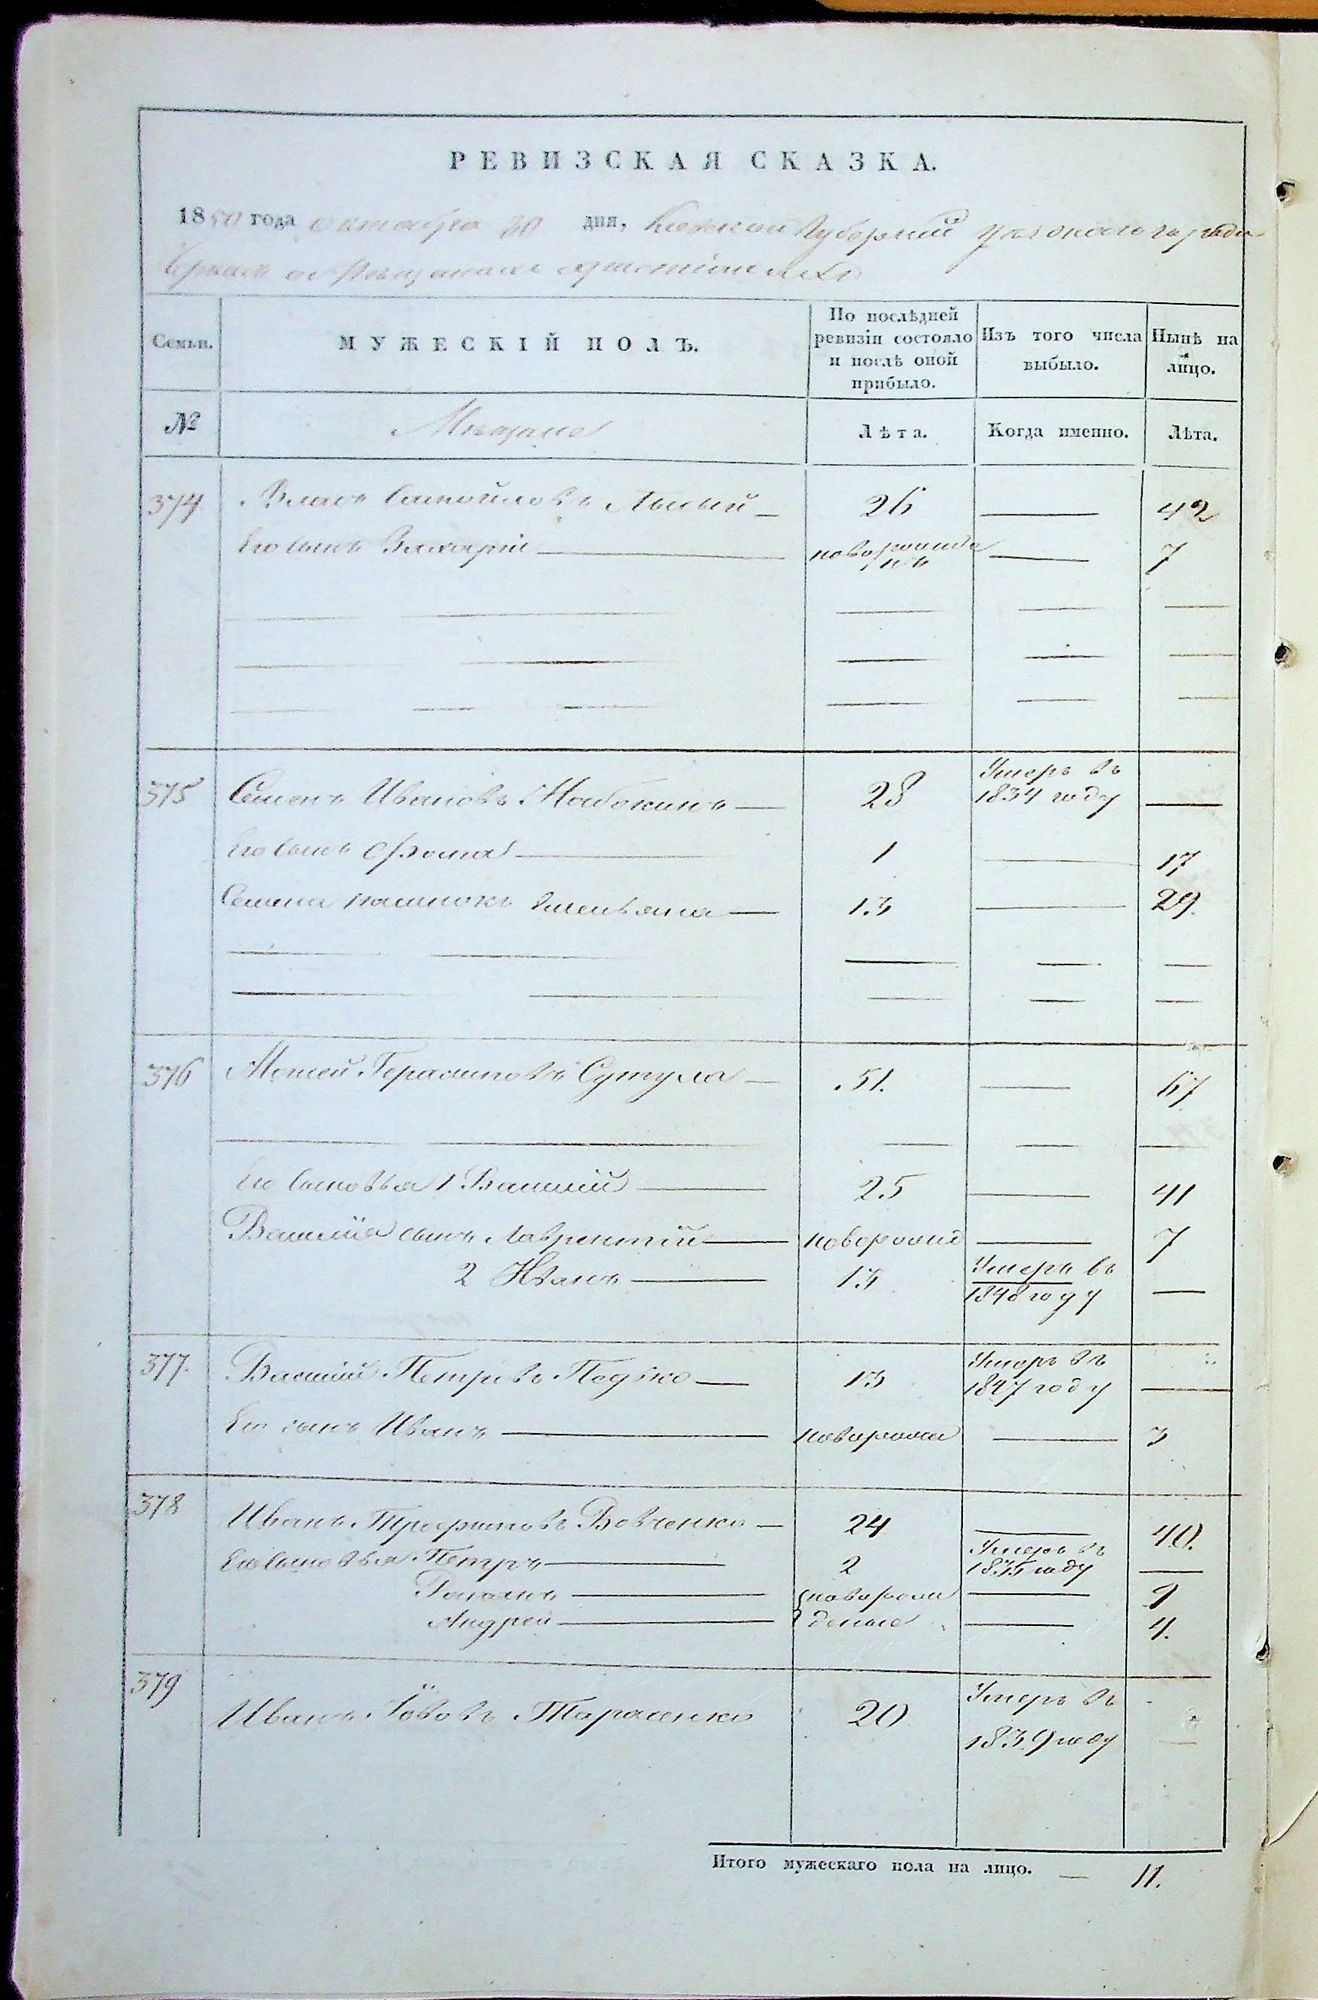 РЕВИЗСКАЯ СКАЗКА.
1850 года октября 30 дня, Киевской Губернии уезднаго города
Черкас о мещанах христианахъ
Семьи. МУЖЕСКІЙ ПОЛЪ. По послѣдней ревизіи состояло и послѣ оной прибыло. Изъ того числа выбыло. Нынѣ на лицо.
№ Мещане Лѣта. Когда именно. Лѣта.
374 Власъ Самойловъ Лысый 26 42
Его сынъ Захарій новорожде нъ 7
375 Семенъ Ивановъ 28 Умеръ въ 1834 году
Его сынъ Фома 1 17
Семена Емельянъ 13 29.
376 Мосей Герасимовъ Сутула 51. 67
Его сыновья 1 Василій 25 41
Василія сынъ Лаврентій новорожд 7
2 Иванъ 13 Умеръ въ 1848 году
377. Василій Петровъ Педько 13 Умеръ въ 1847 году
Его сынъ Иванъ новорожд 3
378 Иванъ Трофимовъ Вовченко 24 40.
Его сыновья Петръ 2 Умеръ въ 1835 году
Романъ новорож 9
Андрей деные 4.
379 Иванъ Іововъ Тарасенко 20 Умеръ въ 1839 году
Итого мужескаго пола на лицо. 11.